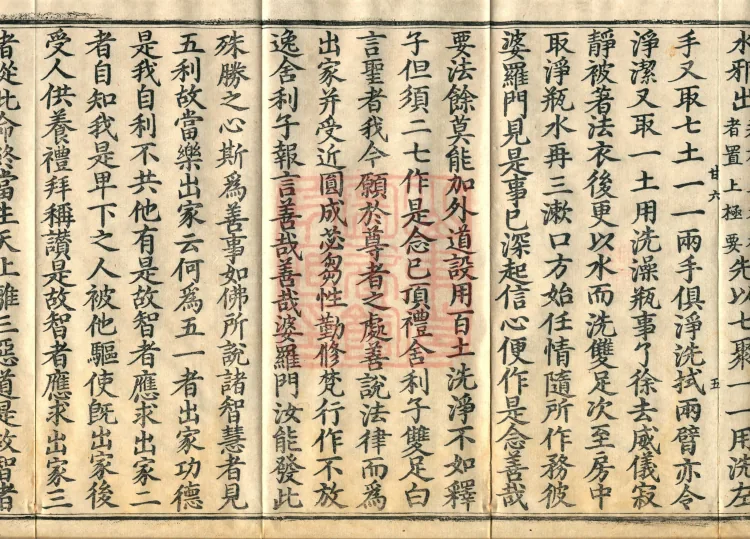 水邪出者置上極要先以七聚一一用洗左
手又取七土一一兩手俱淨洗拭兩臂亦令
淨潔又取一土用洗澡瓶事了徐去威儀寂
靜被著法衣後更以水而洗雙足次至房中
取淨瓶水再三漱口方始任情隨所作務彼
婆羅門見是事已深起信心便作是念善哉
要法餘莫能加外道設用百土洗淨不如釋
子但須二七作是念已頂禮舍利子雙足白
言聖者我今願於尊者之處善說法律而爲
出家并受近圓成苾芻性勤修梵行作不放
逸舍利子報言善哉善哉婆羅門汝能發此
殊勝之心斯爲善事如佛所說諸智慧者見
五利故當樂出家云何爲五一者出家功德
是我自利不共他有是故智者應求出家二
者自知我是卑下之人被他驅使旣出家後
受人供養禮拜稱讃是故智者應求出家三
者從此命終當生天上離三惡道是故智者
廿六
五